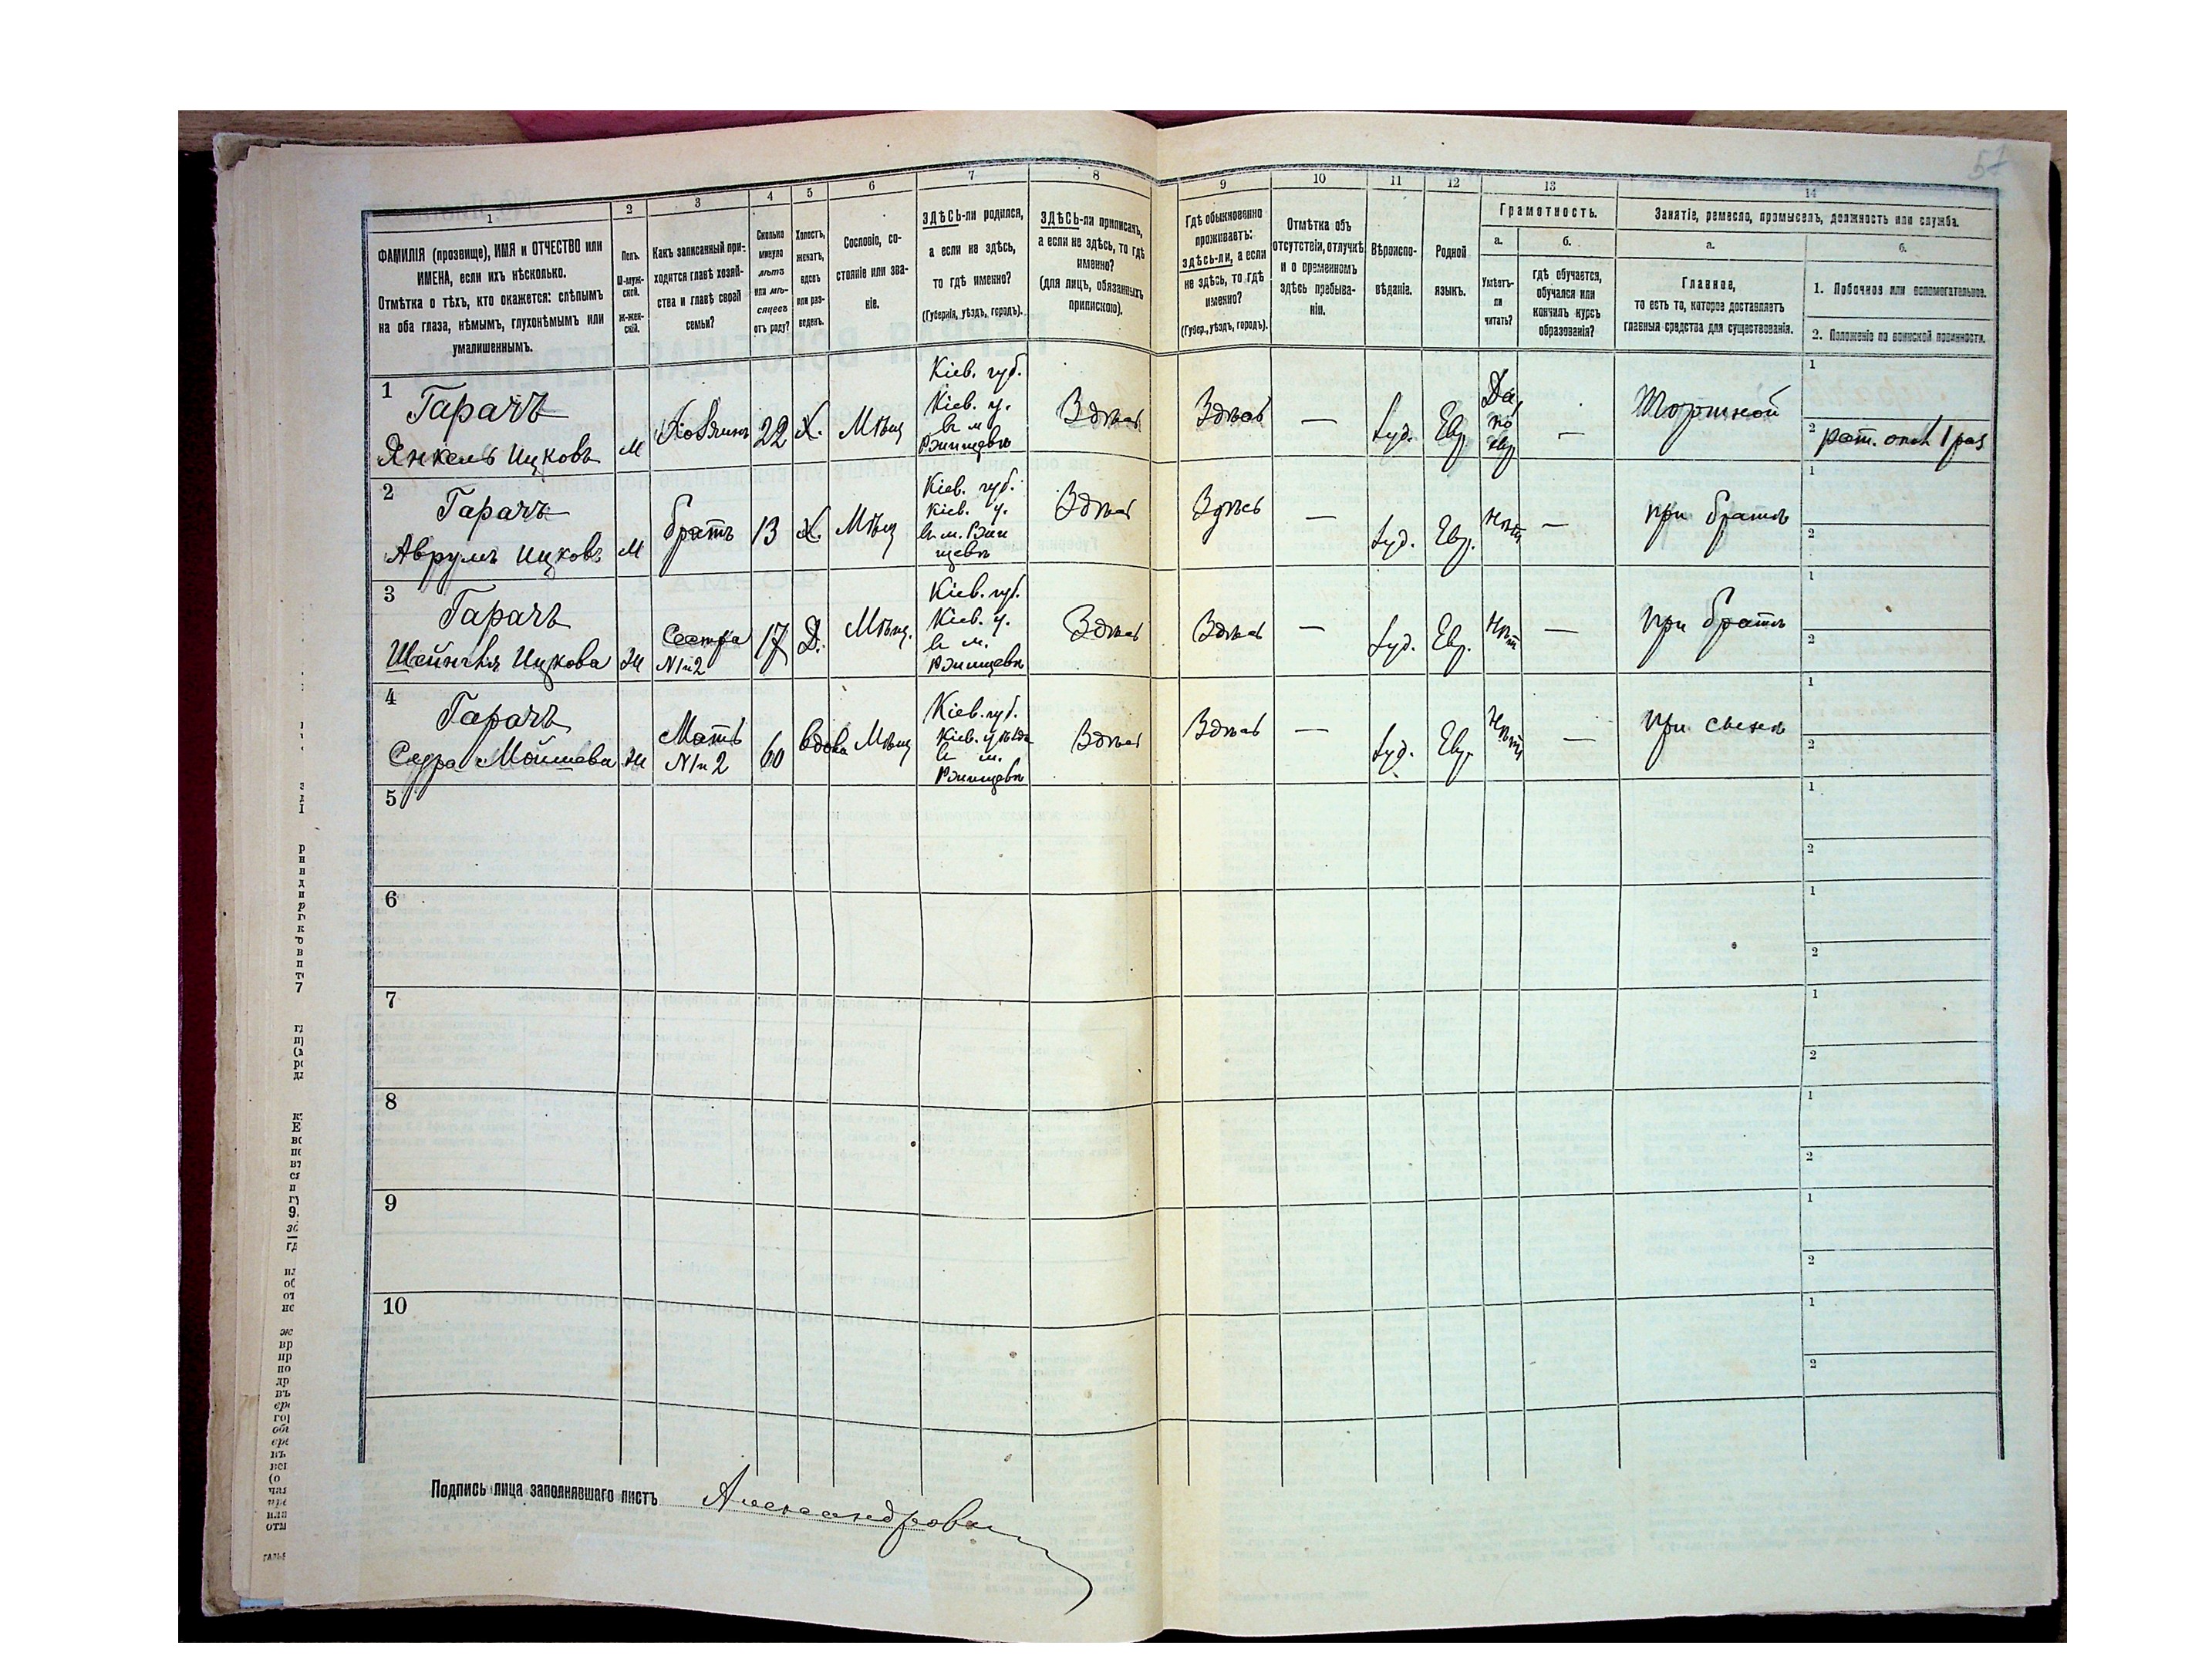 51
1
2
3
4
5
6
7
8
9
10
11
12
13
14
ФАМИЛІЯ (прозвище), ИМЯ и ОТЧЕСТВО или
ИМЕНА, если ихъ нѣсколько.
Отмѣтка о тѣхъ, кто окажется: слѣпымъ
на оба глаза, нѣмымъ, глухонѣмымъ или
умалишеннымъ.
Полъ.
М-муж-
ской.
Ж-жен-
скій.
Какъ записанный при-
ходится главѣ хозяй-
ства и главѣ своей
семьи?
Сколько
минуло
лѣтъ
или мѣ-
сяцевъ
отъ роду?
Холостъ,
женатъ,
вдовъ
или раз-
веденъ.
Сословіе, со-
стояніе или зва-
ніе.
ЗДѢСЬ-ли родился,
а если не здѣсь,
то гдѣ именно?
(Губернія, уѣздъ, городъ).
ЗДѢСЬ-ли приписанъ,
а если не здѣсь, то гдѣ
именно?
(для лицъ, обязанныхъ
припискою).
Гдѣ обыкновенно
проживаетъ:
здѣсь-ли, а если
не здѣсь, то гдѣ
именно?
(Губер., уѣздъ, городъ).
Отмѣтка объ
отсутствіи, отлучкѣ
и о временномъ
здѣсь пребыва-
ніи.
Вѣроиспо-
вѣданіе.
Родной
языкъ.
Грамотность.
а.
б.
Умѣетъ-
ли
читать?
гдѣ обучается,
обучался или
кончилъ курсъ
образованія?
Занятіе, ремесло, промыселъ, должность или служба.
а.
б.
Главное,
то есть то, которое доставляетъ
главныя средства для существованія.
1. Побочное или вспомогательное.
2. Положеніе по воинской повинности.
1
Гарачъ
Янкель Ицковъ
М
Хозяинъ
22
Х.
Мѣщ
Кіев. губ.
Кіев. у.
в м
Ржищевѣ
Здѣсь
Здѣсь
—
Іуд.
Евр.
Да,
по
евр
—
Портной
1
2
рат. опол. 1 раз
2
Гарачъ
Аврумъ Ицковъ
М
братъ
13
Х.
Мѣщ
Кіев. губ.
Кіев. у.
в м. Ржи
щевѣ
Здѣсь
Здѣсь
—
Іуд.
Евр.
Нѣтъ
—
при братѣ
1
2
3
Гарачъ
Ицкова
Ж
Сестра
N1и2
17
Д.
Мѣщ.
Кіев. губ.
Кіев. у.
в м.
Ржищевѣ
Здѣсь
Здѣсь
—
Іуд.
Евр.
Нѣтъ
—
при братѣ
1
2
4
Гарачъ
Мойшева
Ж
Мать
N1и2
60
вдова
Мѣщ
Кіев. губ.
Кіев. уѣзда
в м.
Ржищевѣ
Здѣсь
Здѣсь
—
Іуд.
Евр
Нѣтъ
—
при сынѣ
1
2
5
1
2
6
1
2
7
1
2
8
1
2
9
1
2
10
1
2
Подпись лица заполнявшаго листъ